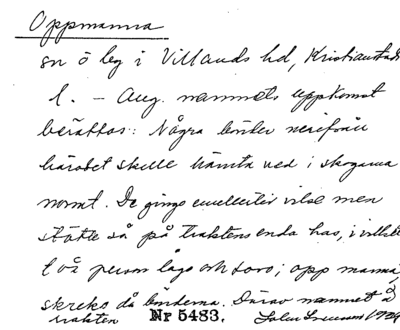 Oppmanna
sn ö beg i Villands hd, Kristianstads
l. – Ang. namnets uppkomst
berättas: Några bönder nerifrån
häradet skulle hämta ved i skogarna
norrut. De gingo emellertid vilse men
stötte så på traktens enda hus, i vilket
två person lågo och sovo; opp manna,
skreko då bönderna. Därav namnet å
trakten Nr 5483.